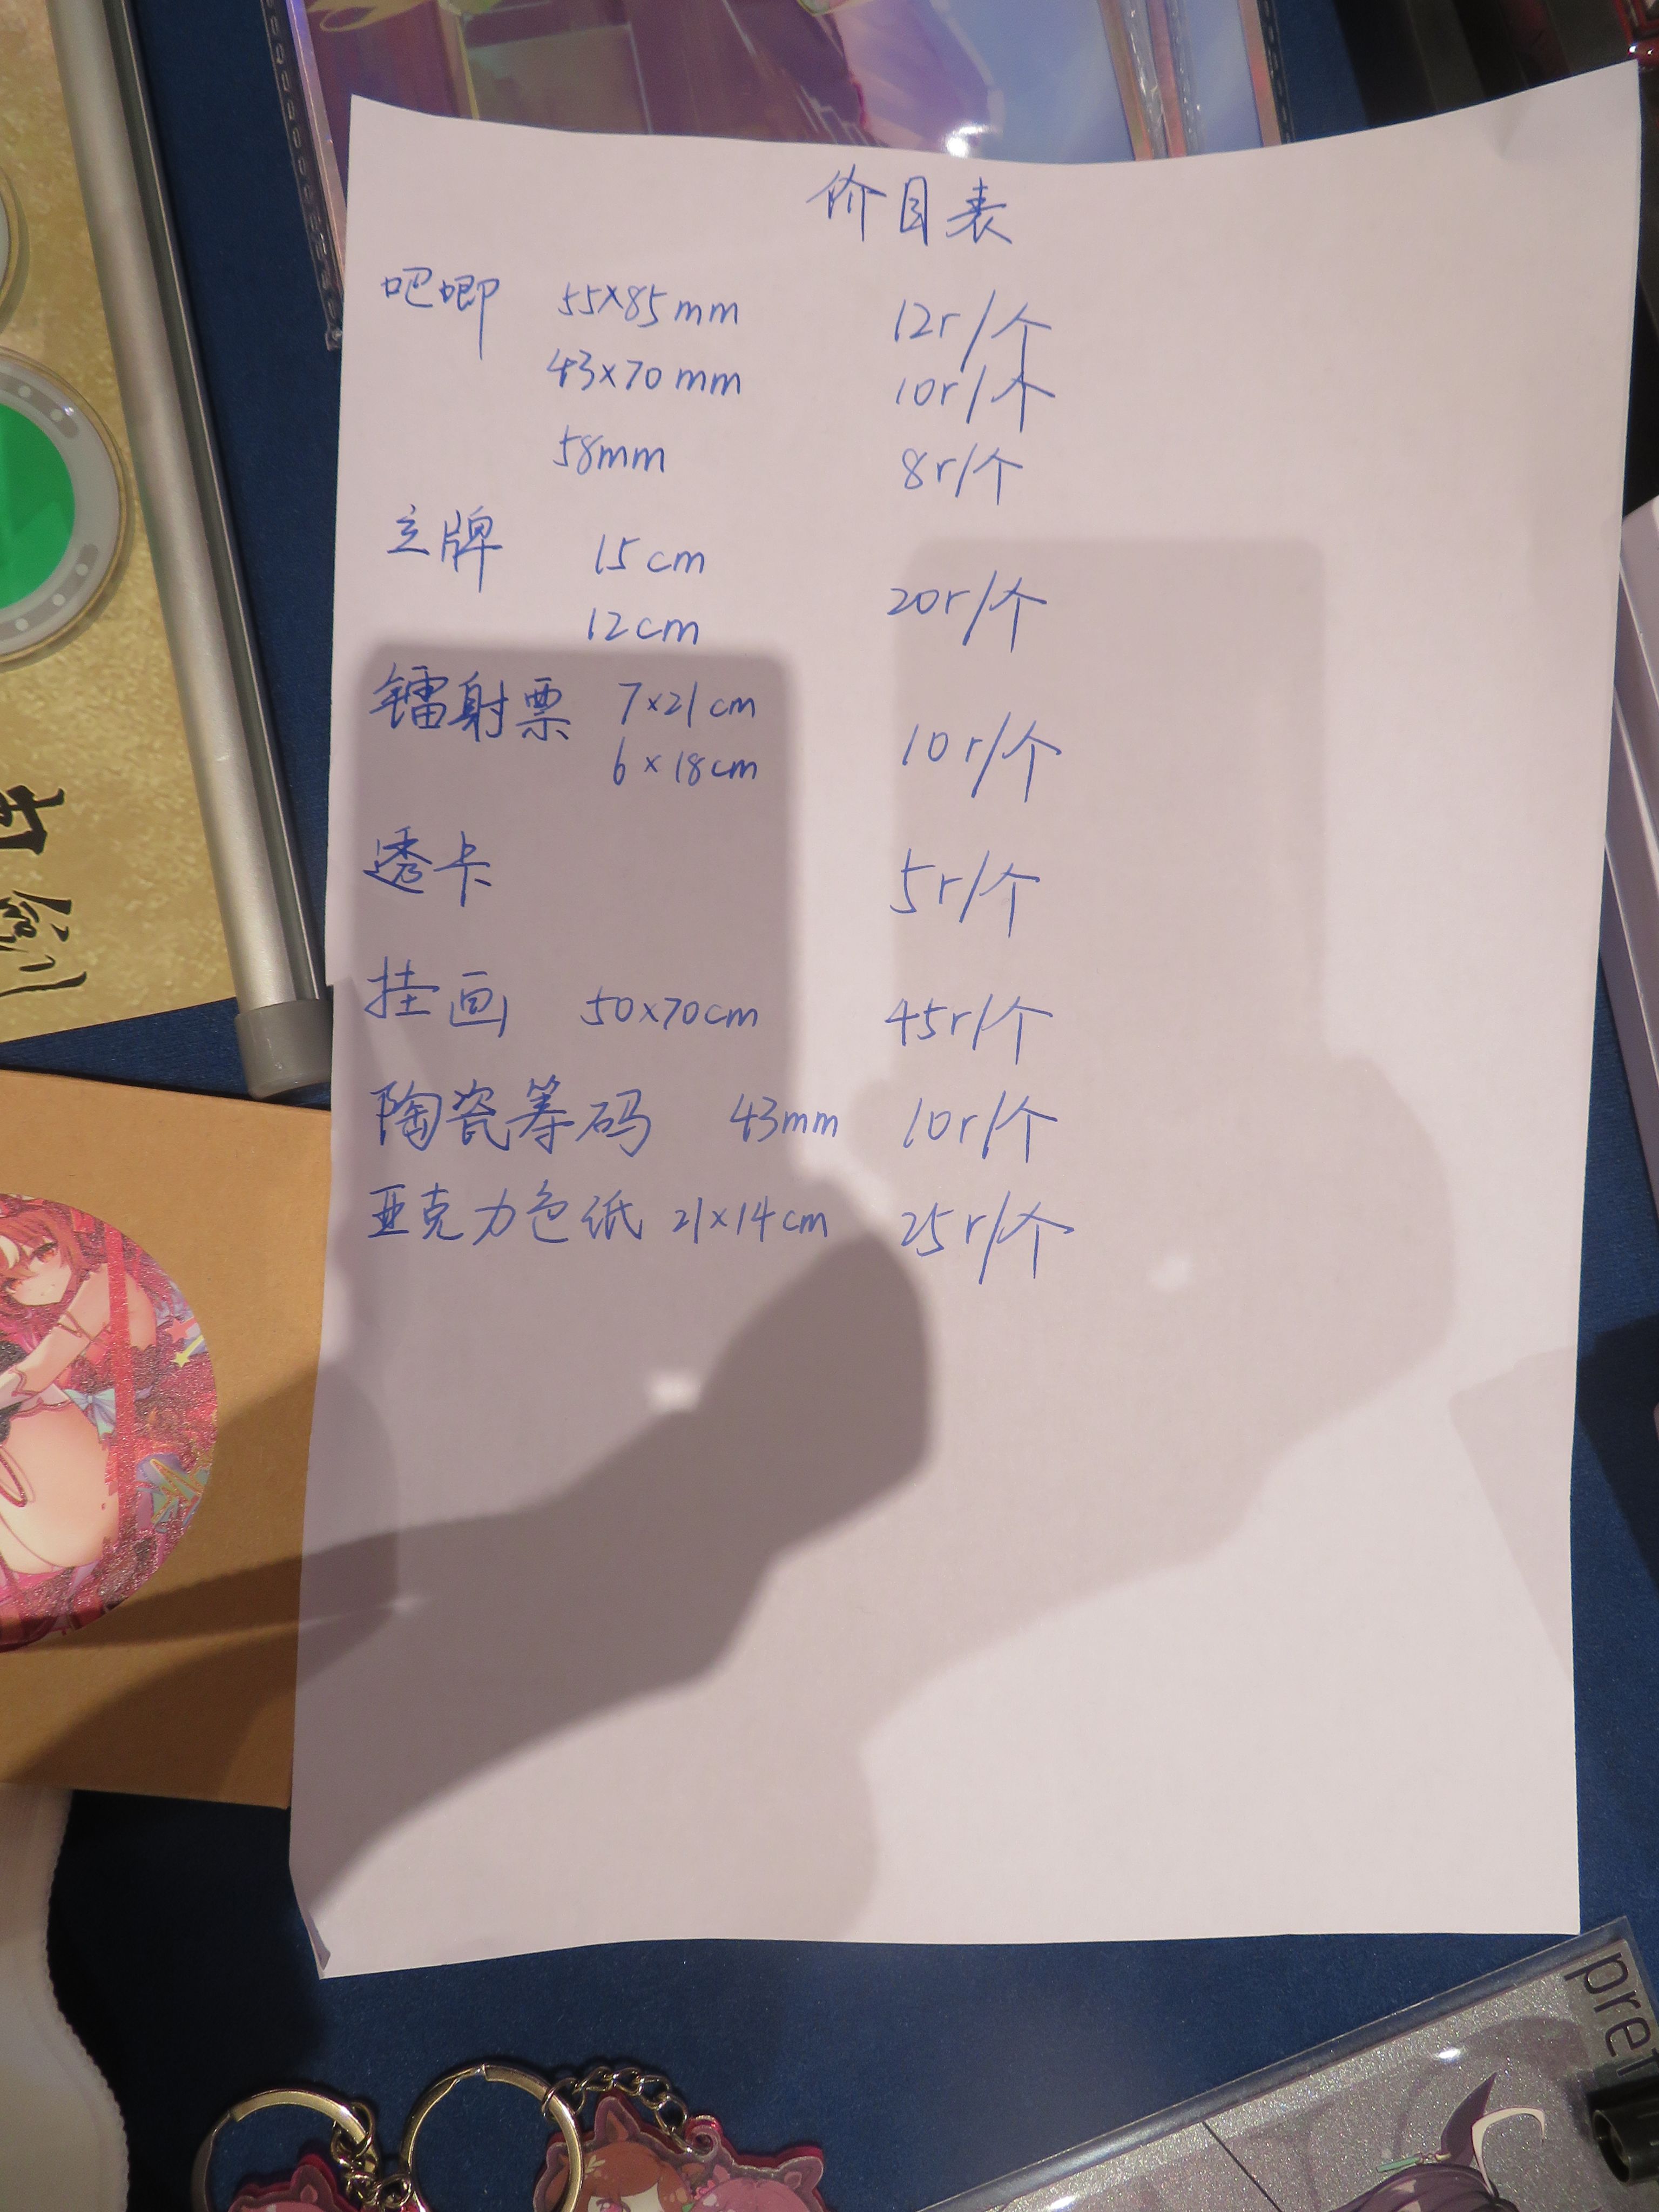 价目表
吧唧 55×85mm 12r/个
43×70mm 10r/个
58mm 8r/个
立牌 15cm
20r/个
12cm
镭射票 7×21cm
10r/个
6×18cm
透卡 5r/个
挂画 50×70cm 45r/个
陶瓷筹码 43mm 10r/个
亚克力色纸 21×14cm 25r/个